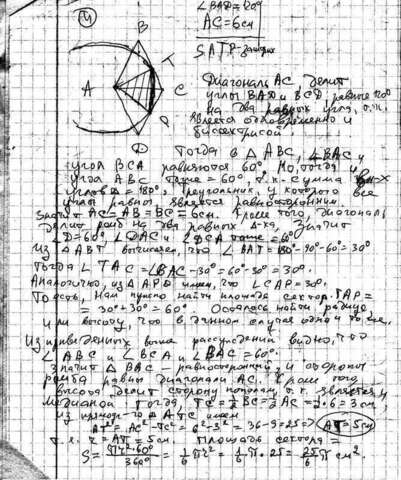 4
∠BAD=120°
AC=6см
SATP-закраш.
B
T
A
C
P
D
Диагональ AC делит
углы BAD и BCD, равные 120°
на два равных угла, т.к.
является одновременно и
биссектрисой.
Тогда в ΔABC, ∠BAC и
угол BCA равняются 60°. Но, тогда и
угол ABC тоже = 60°, т.к. сумма
углов Δ = 180°, треугольник, у которого все
углы равны, является равносторонним.
Значит AC=AB=BC=6см. Кроме того, диагональ
делит ромб на два равных Δ-ка, значит
∠D=60°, ∠DAC и ∠DCA тоже = 60°
Из ΔABT вычислим, что ∠BAT=180°-90°-60°=30°
Тогда ∠TAC=∠BAC-30°=60°-30°=30°.
Аналогично, из ΔAPD имеем, что ∠CAP=30°.
То есть, нам нужно найти площадь сектора TAP=
=30°+30°=60°. Осталось найти радиус
или высоту, что в данном случае одно и то же.
Из приведенных выше рассуждений видно, что
∠ABC и ∠BCA и ∠BAC=60°.
Значит ΔBAC - равносторонний, и стороны
ромба равны диагонали AC. Кроме того
высота делит сторону пополам, т.к. является и
медианой. Тогда, TC=½BC=½AC=½·6=3см,
из прямоуг-го ΔATC имеем
AT²=AC²-TC²=6²-3²=36-9=25=> AT=5см
т.е. r=AT=5см. Площадь сектора =
S=πr²·60°/360°=1/6πr²=1/6π·25=25/6π см².